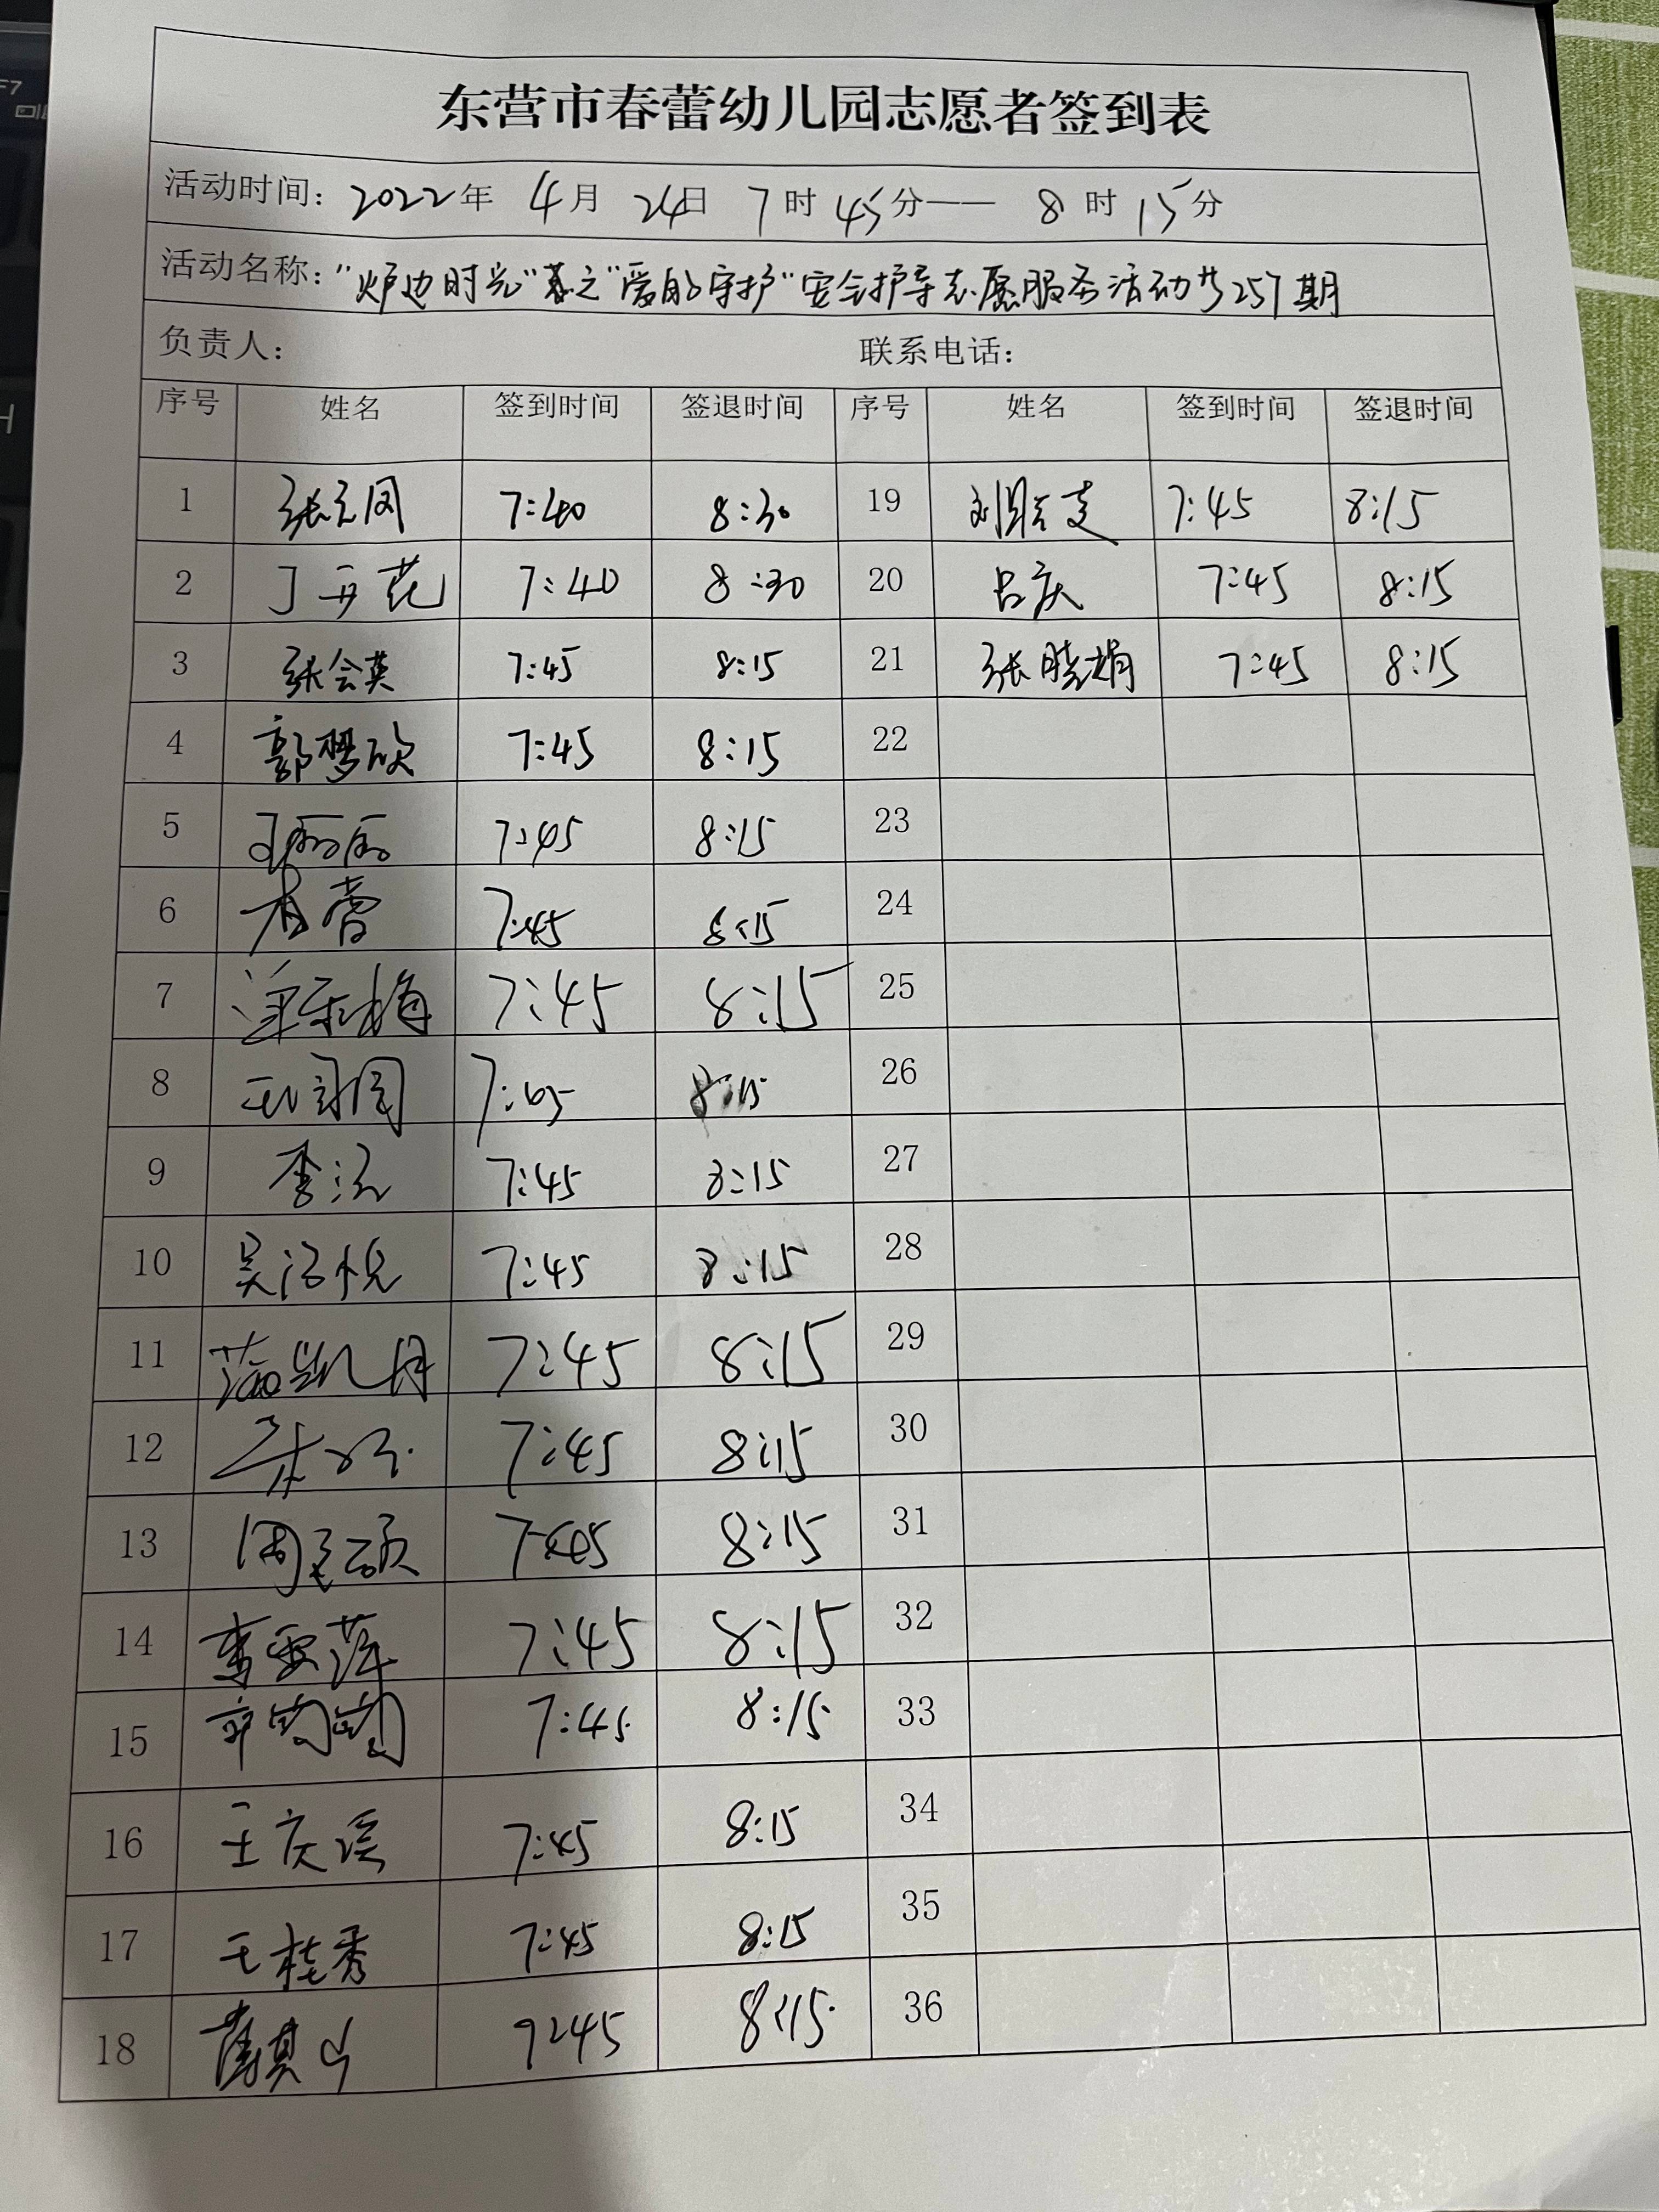 东营市春蕾幼儿园志愿者签到表
活动时间: 2022年 4月 24日 7时 45分—— 8时 15分
活动名称: "炉边时光"春之"爱的守护"安全护导志愿服务活动第257期
负责人: 联系电话:
序号 姓名 签到时间 签退时间 序号 姓名 签到时间 签退时间
1 7:40 8:30 19 7:45 8:15
2 7:40 8:30 20 吕庆 7:45 8:15
3 张会英 7:45 8:15 21 张晓娟 7:45 8:15
4 郭梦欣 7:45 8:15 22
5 王丽丽 7:45 8:15 23
6 7:45 8:15 24
7 7:45 8:15 25
8 7:45 8:15 26
9 7:45 8:15 27
10 7:45 8:15 28
11 7:45 8:15 29
12 7:45 8:15 30
13 7:45 8:15 31
14 7:45 8:15 32
15 7:45 8:15 33
16 王庆溪 7:45 8:15 34
17 王桂秀 7:45 8:15 35
18 7:45 8:15 36
F7
H